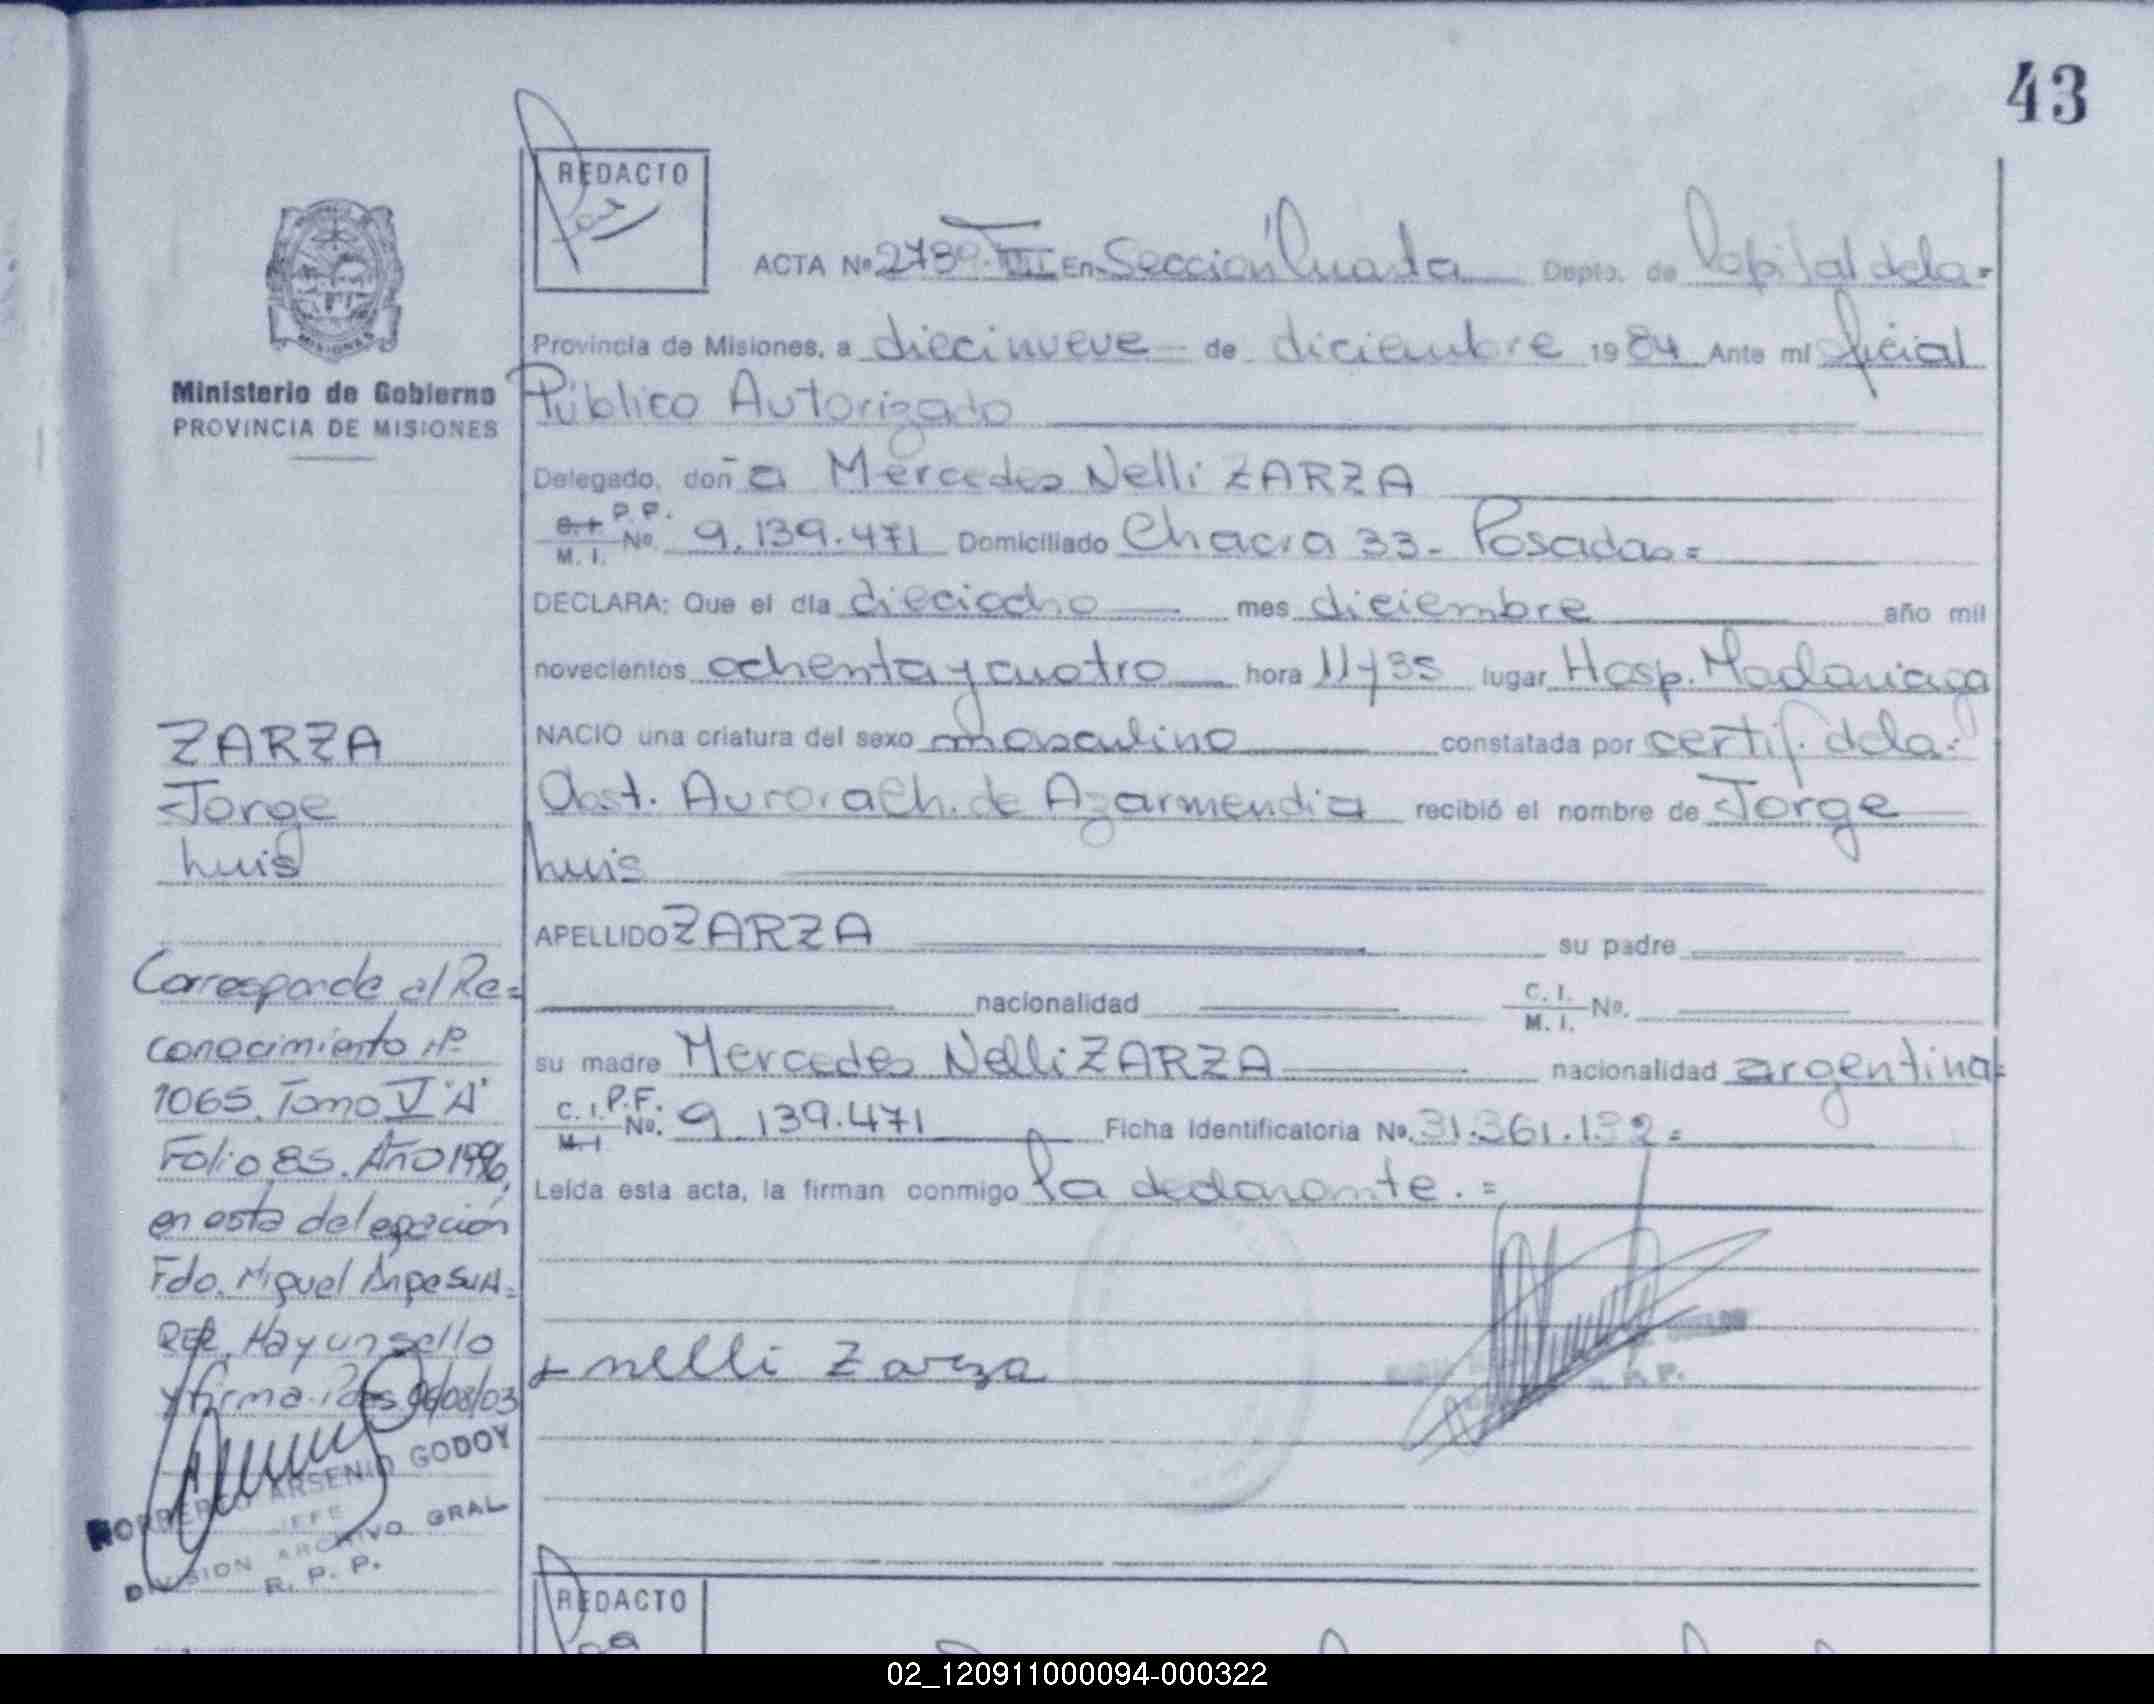 43
REDACTO
ACTA Nº 2789 - VIII En Sección Cuarta Depto. de Capital de la=
Provincia de Misiones, a diecinueve de diciembre 1984 Ante mi Oficial
Público Autorizado
Delegado, doña Mercedes Nelli ZARZA
C.I. P.F.
M. I. Nº 9.139.471 Domiciliado Chacra 33- Posadas=
DECLARA: Que el día dieciocho mes diciembre año mil
novecientos ochenta y cuatro hora 11y35 lugar Hosp. Madariaga
NACIO una criatura del sexo masculino constatada por certif. dela=
Obst. Aurora Ch. de Azarmendia recibió el nombre de Jorge
Luis
APELLIDO ZARZA su padre
nacionalidad C. I. M. I. Nº.
su madre Mercedes Nelli ZARZA nacionalidad argentina=
C. I. P.F.
M. I Nº. 9.139.471 Ficha Identificatoria Nº. 31.361.132=
Leída esta acta, la firman conmigo la declarante.=
+ nelli Zarza
Ministerio de Gobierno
PROVINCIA DE MISIONES
ZARZA
Jorge
Luis
Corresponde al Re=
conocimiento Nº
1065. Tomo V "A"
Folio 85. Año 1996,
en esta delegación
Fdo. Miguel Ange
Hay un sello
y firma. 06/08/03
NORBERTO ARSENIO GODOY
JEFE
DIVISION ARCHIVO GRAL
R. P. P.
REDACTO
02_120911000094-000322